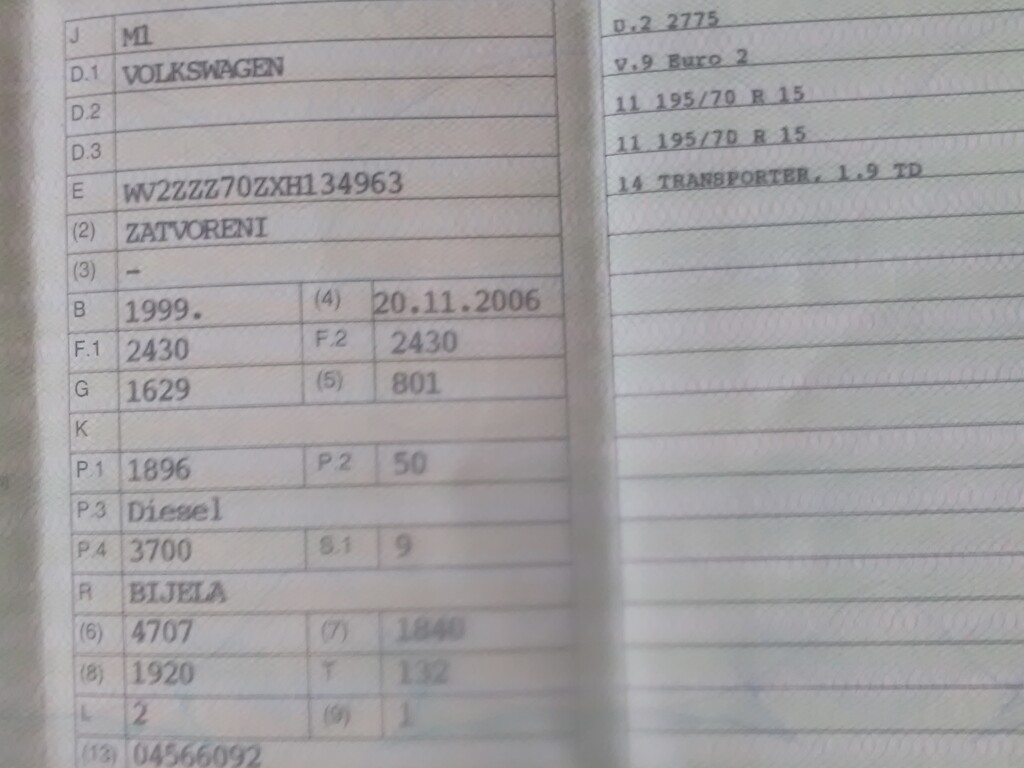 J M1
D.1 VOLKSWAGEN
D.2
D.3
E WV2ZZZ70ZXH134963
(2) ZATVORENI
(3) -
B 1999. (4) 20.11.2006
F.1 2430 F.2 2430
G 1629 (5) 801
K
P.1 1896 P.2 50
P.3 Diesel
P.4 3700 S.1 9
R BIJELA
(6) 4707 (7) 1840
(8) 1920 T 132
L 2 (9) 1
(13) 04566092
D.2 2775
V.9 Euro 2
11 195/70 R 15
11 195/70 R 15
14 TRANSPORTER, 1.9 TD